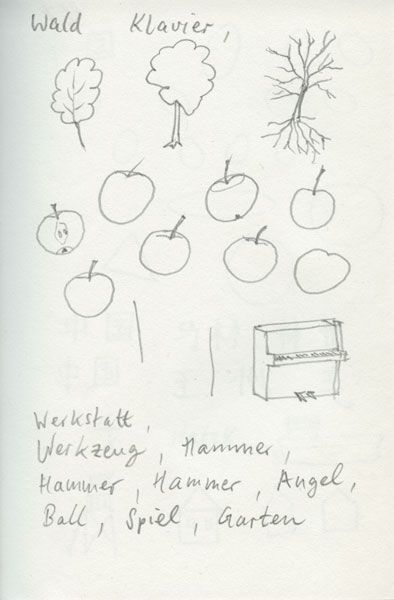 Wald Klavier,
Werkstatt,
Werkzeug, Hammer,
Hammer, Hammer, Angel,
Ball, Spiel, Garten